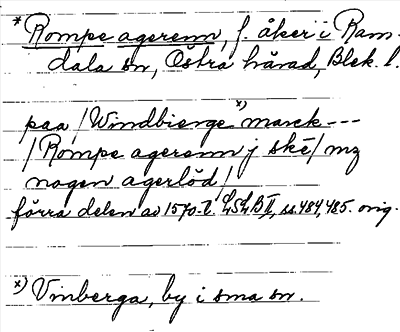 * Rompe agerenn, f. åker i Ram-
dala sn, Östra härad, Blek. l.
paa /Windbierge *) marck ---
/Rompe agerenn j skē/ mz
nogen agerlöd/
förra delen av 1570-t. LSLB II, ss. 484, 485. orig.
*) Vinberga, by i sma sn.